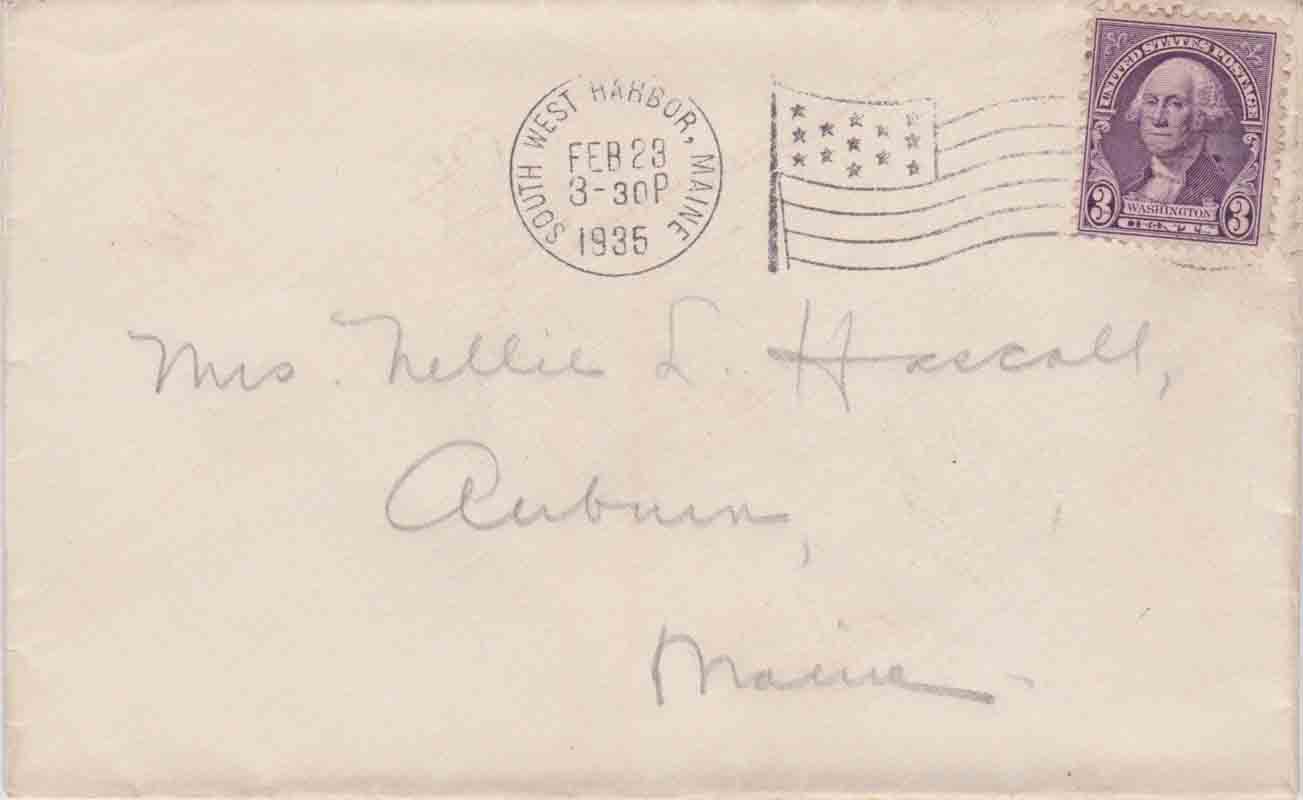 SOUTH WEST HARBOR, MAINE
FEB 23
3-30P
1935
UNITED STATES POSTAGE
3 WASHINGTON 3
Mrs. Nellie L. Hascall,
Auburn,
Maine